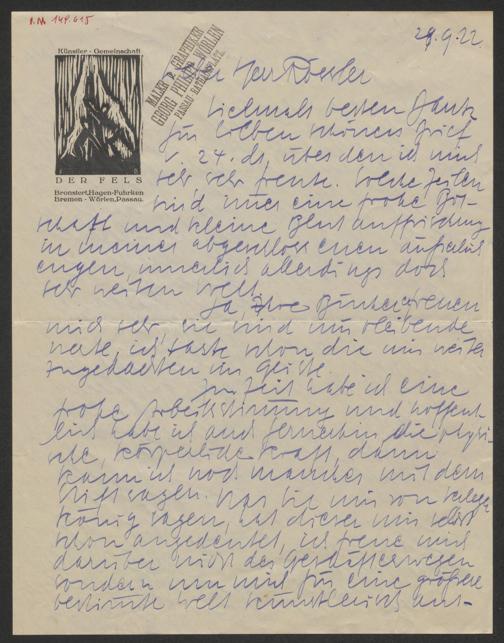 I.N. 149.615
29.9.22.
Künstler-Gemeinschaft
DER FELS
Bronstert, Hagen-Fuhrken
Bremen - Wörlen, Passau.
MALER u. GRAPHIKER
GEORG PHILIPP WÖRLEN
PASSAU
Herr Roessler
Vielmals besten Dank
für lieben schönen Brief
v. 24. ds, über den ich mich
sehr sehr freute. Solche Zeilen
sind immer eine frohe Bot-
schaft und kleine Blutauffrischung
in meiner abgeschlossenen
engen, innerlich allerdings doch
sehr weiten Welt.
Ja, Ihre Bücher freuen
mich sehr, sie sind mir bleibende
Werte, ich taste schon die mir weiter
zugedachten im Geiste.
Zur Zeit habe ich eine
frohe Arbeitsstimmung und hoffent-
lich habe ich auch fernerhin die physi-
sche, körperliche Kraft, dann
kann ich noch manches mit dem
Stift sagen. Was Sie mir von Verleger
König sagen, hat dieser mir selbst
schon angedeutet, ich freue mich
darüber nicht des Geschäftes wegen
sondern um mich für eine größere
bestimmte Welt künstlerisch aus-